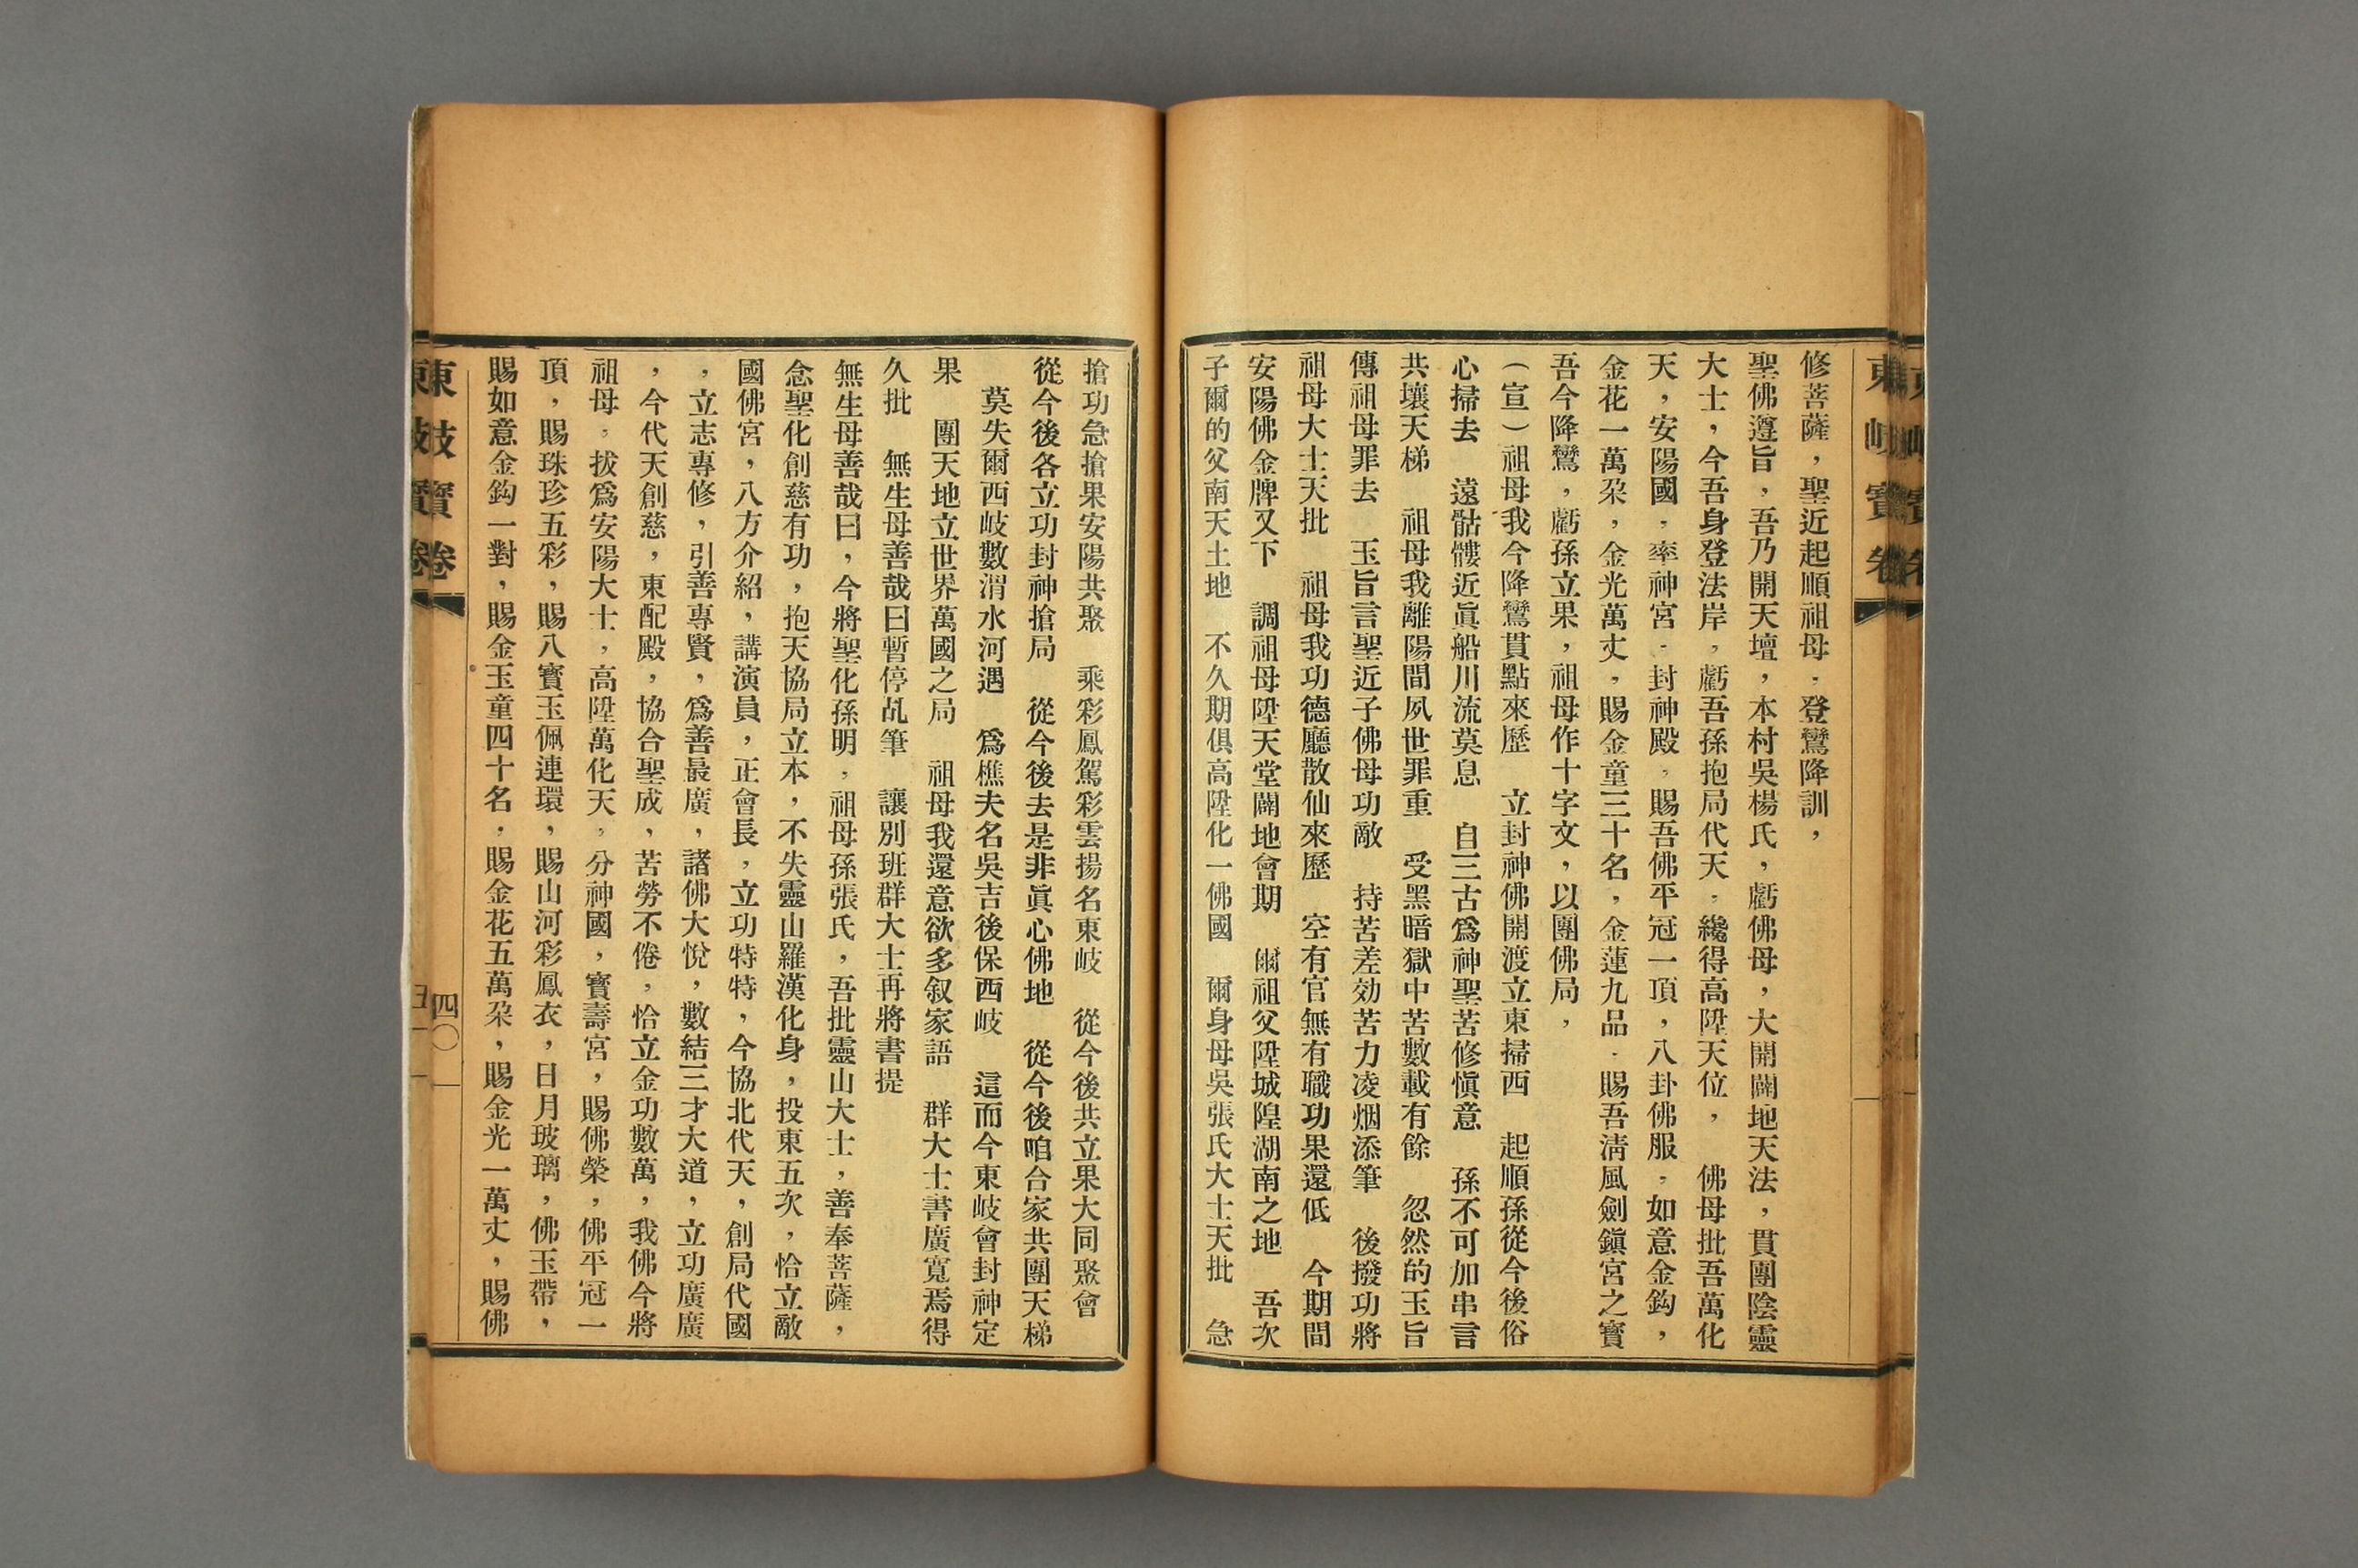 修菩薩，聖近起順祖母，登鸞降訓，
聖佛遵旨，吾乃開天壇，本村吳楊氏，虧佛母，大開闢地天法，貫團陰靈
大士，今吾身登法岸，虧吾孫抱局代天，纔得高陞天位，　佛母批吾萬化
天，安陽國，率神宮，封神殿，賜吾佛平冠一頂，八卦佛服，如意金鈎，
金花一萬朶，金光萬丈，賜金童三十名，金蓮九品，賜吾淸風劍鎭宮之寶
吾今降鸞，虧孫立果，祖母作十字文，以團佛局，
（宣）祖母我今降鸞貫點來歷　立封神佛開渡立東掃西　起順孫從今後俗
心掃去　遠骷髏近眞船川流莫息　自三古爲神聖苦修愼意　孫不可加串言
共壞天梯　祖母我離陽間夙世罪重　受黑暗獄中苦數載有餘　忽然的玉旨
傳祖母罪去　玉旨言聖近子佛母功敵　持苦差効苦力凌烟添筆　後撥功將
祖母大士天批　祖母我功德廳散仙來歷　空有官無有職功果還低　今期間
安陽佛金牌又下　調祖母陞天堂闢地會期　爾祖父陞城隍湖南之地　吾次
子爾的父南天土地　不久期俱高陞化一佛國　爾身母吳張氏大士天批　急
搶功急搶果安陽共聚　乘彩鳳駕彩雲揚名東岐　從今後共立果大同聚會
從今後各立功封神搶局　從今後去是非眞心佛地　從今後咱合家共團天梯
莫失爾西岐數渭水河遇　爲樵夫名吳吉後保西岐　這而今東岐會封神定
果　團天地立世界萬國之局　祖母我還意欲多叙家語　群大士書廣寬焉得
久批　無生母善哉曰暫停乩筆　讓別班群大士再將書提
無生母善哉曰，今將聖化孫明，祖母孫張氏，吾批靈山大士，善奉菩薩，
念聖化創慈有功，抱天協局立本，不失靈山羅漢化身，投東五次，恰立敵
國佛宮，八方介紹，講演員，正會長，立功特特，今協北代天，創局代國
，立志專修，引善專賢，爲善最廣，諸佛大悅，數結三才大道，立功廣廣
，今代天創慈，東配殿，協合聖成，苦勞不倦，恰立金功數萬，我佛今將
祖母，拔爲安陽大士，高陞萬化天，分神國，寶壽宮，賜佛榮，佛平冠一
頂，賜珠珍五彩，賜八寶玉佩連環，賜山河彩鳳衣，日月玻璃，佛玉帶，
賜如意金鈎一對，賜金玉童四十名，賜金花五萬朶，賜金光一萬丈，賜佛
東岐寶卷
四〇